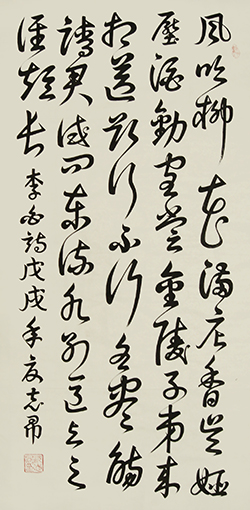 風吹柳花滿店香吳姬
壓酒勸客嘗金陵子弟來
相送欲行不行各盡觴
請君試問東流水別意與之
誰短長 李白詩戊戌年夏志昂